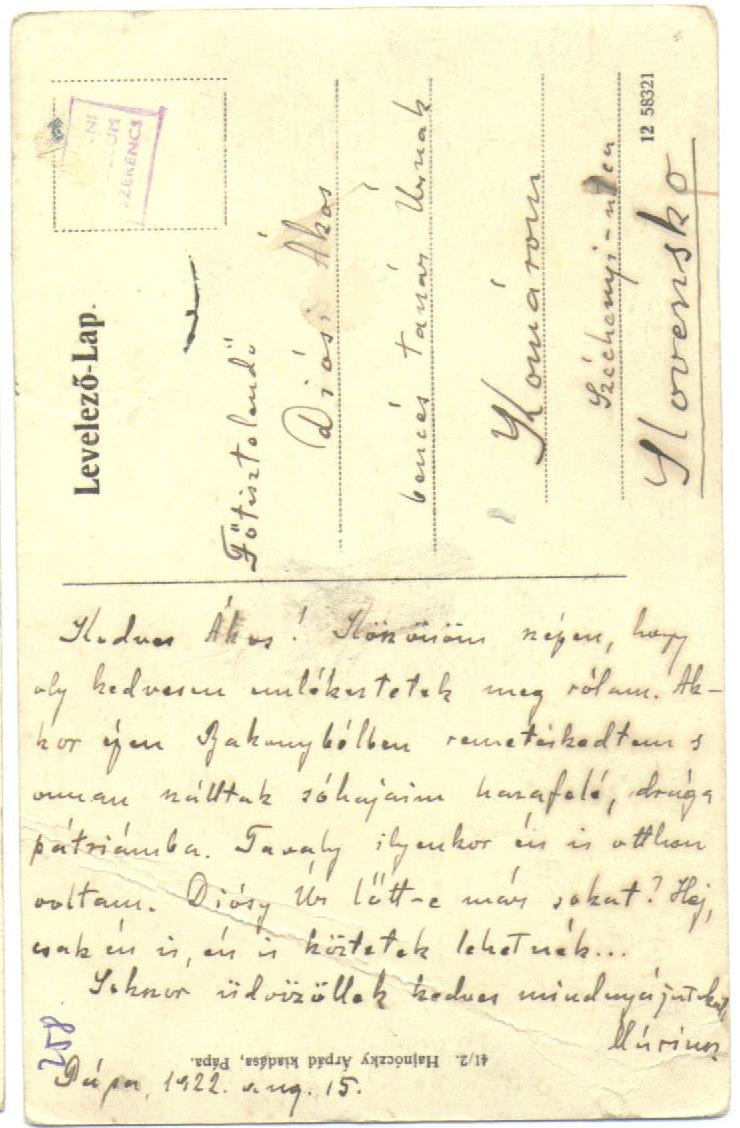 Levelező-Lap.
NI
UM
SZERENCS
Főtisztelendő
Diósi Ákos
bencés tanár Úrnak
Komárom
Széchenyi-utca
Slovensko
12 58321
Kedves Ákos! Köszönöm szépen, hogy
oly kedvesen emlékeztetek meg rólam. Ak-
kor épen Bakonybélben remetéskedtem s
onnan szálltak sóhajaim hazafelé, drága
pátriámba. Tavaly ilyenkor én is otthon
voltam. Diósy Úr lőtt-e már sokat? Hej,
csak én is, én is köztetek lehetnék...
Sokszor üdvözöllek kedves mindnyájatokat,
258
41/2. Hajnóczky Árpád kiadása, Pápa.
Pápa, 1922. aug. 15.